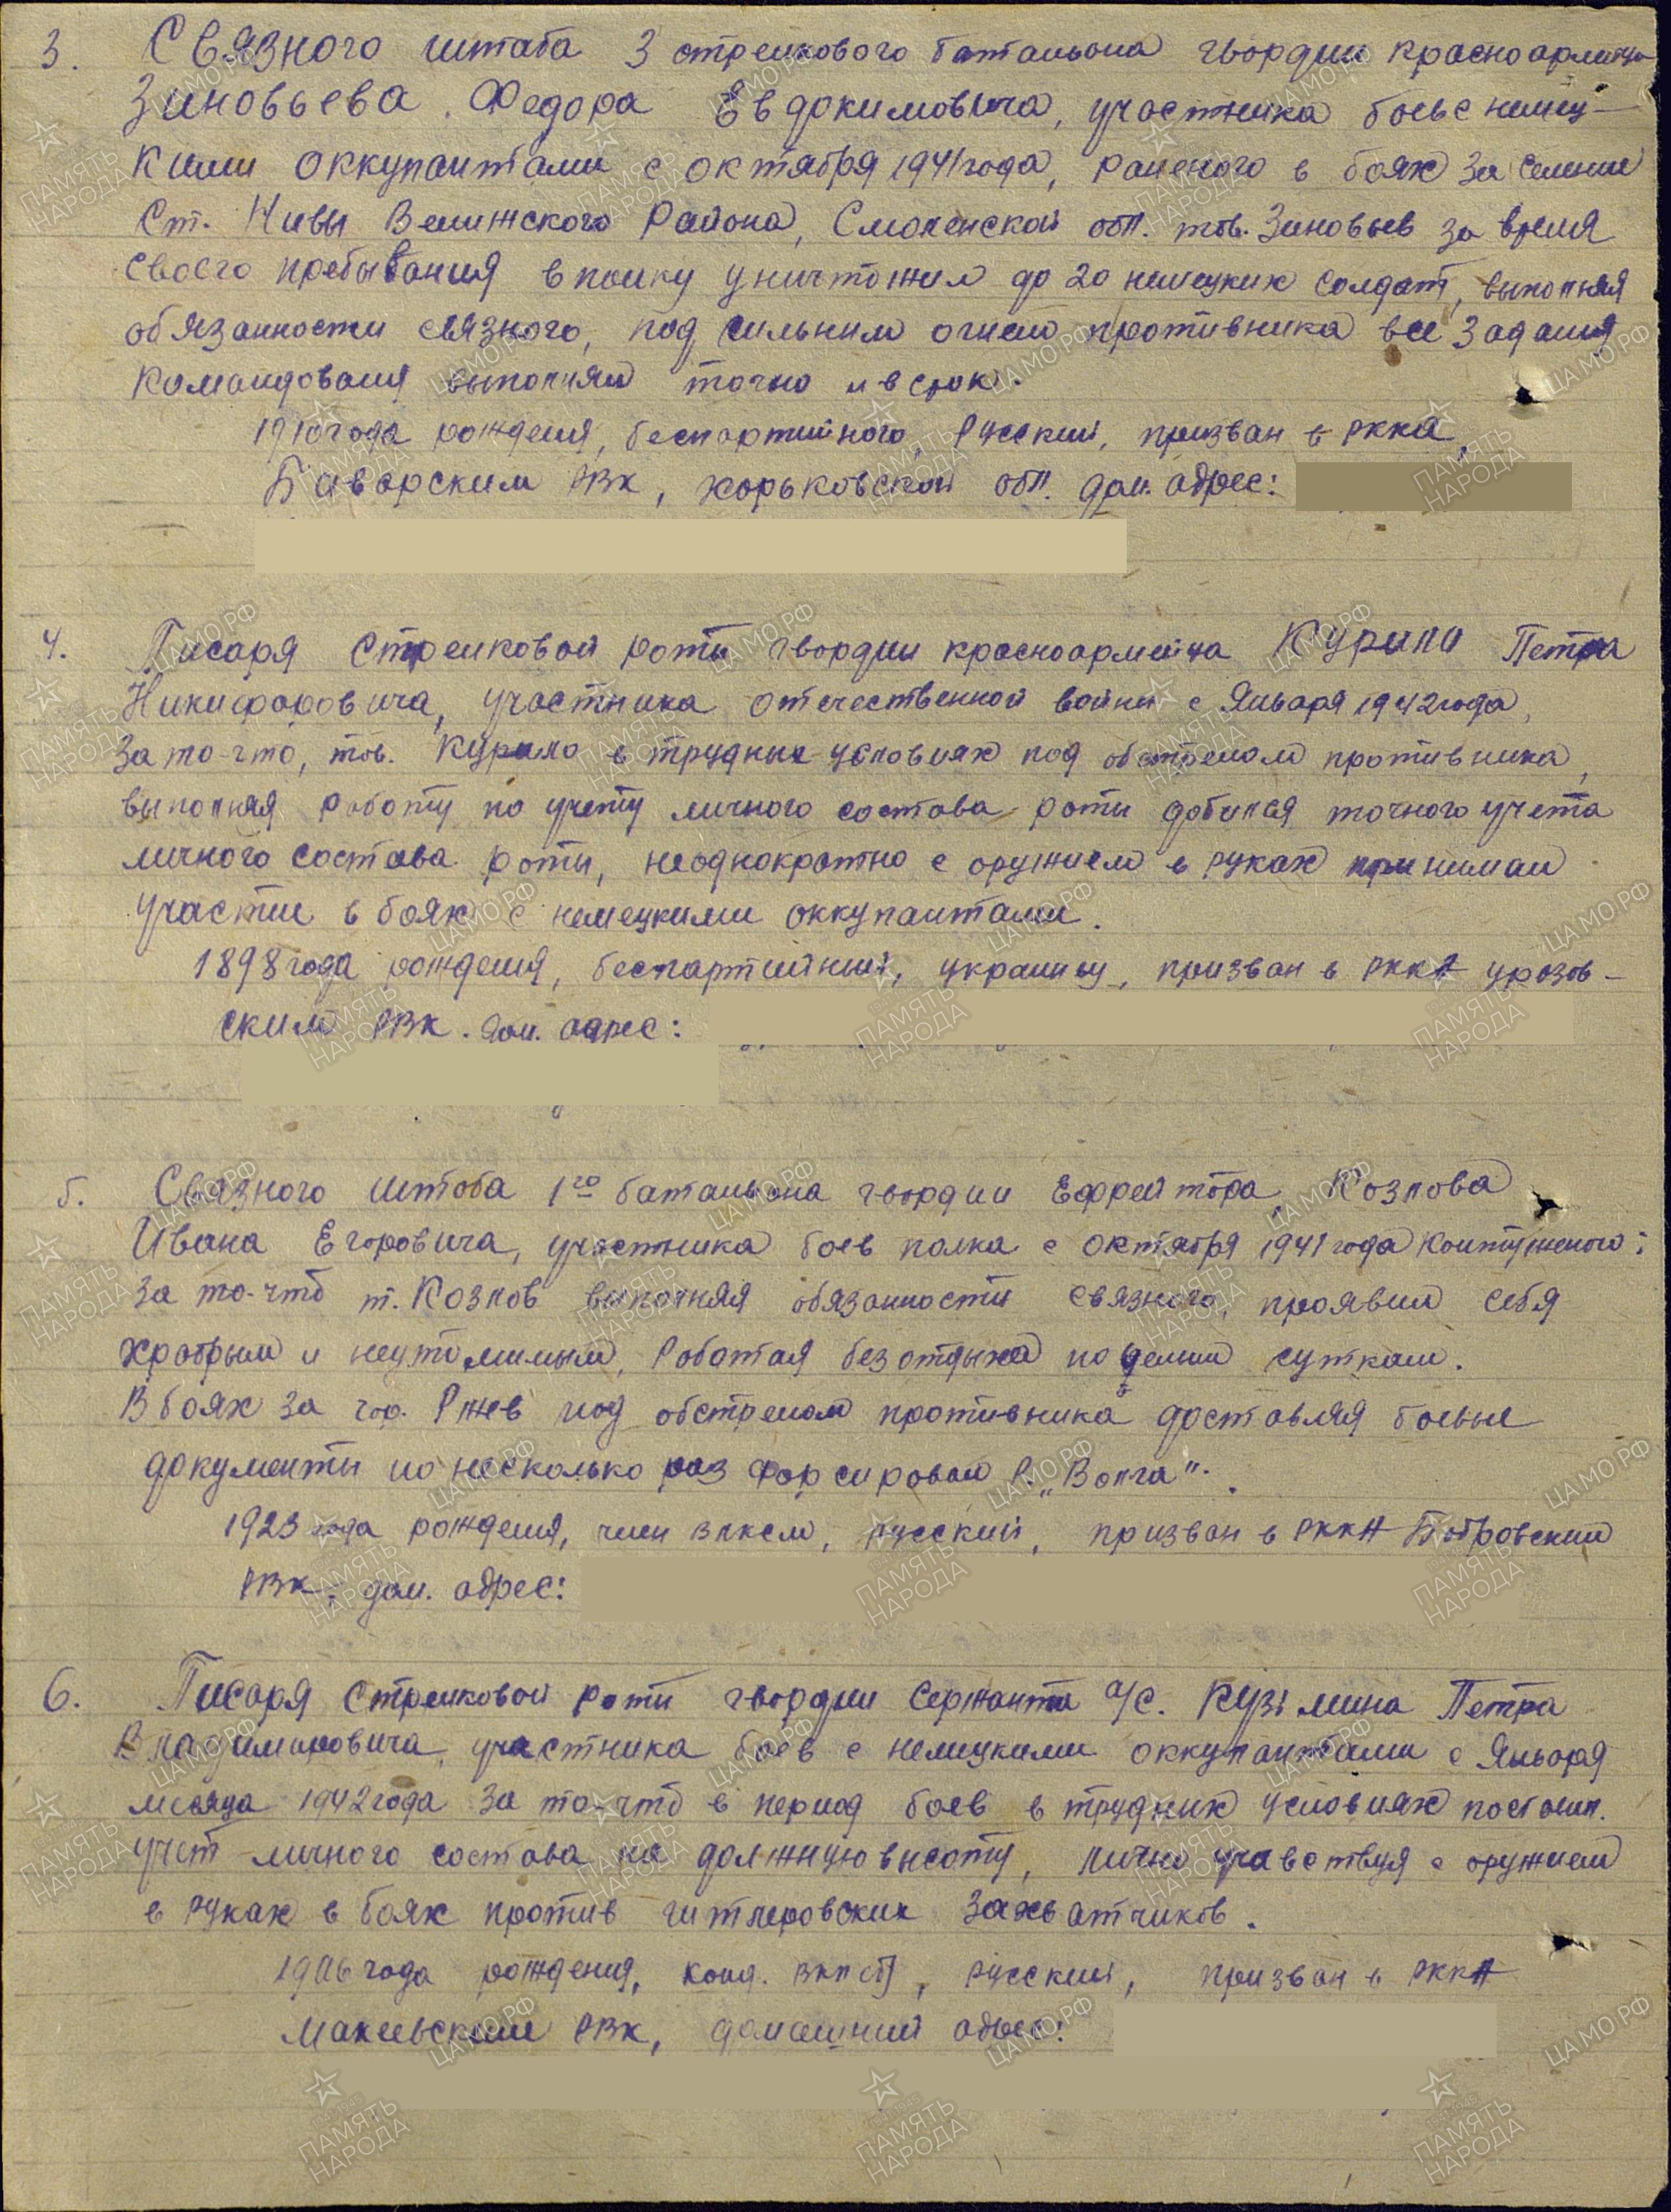 3. Связного штаба 3 стрелкового батальона гвардии красноармейца
Зиновьева Федора Евдокимовича, участника боев с немец-
кими оккупантами с октября 1941 года, раненого в боях за селение
Ст. Нивы Велижского Района, Смоленской обл. тов. Зиновьев за время
своего пребывания в полку уничтожил до 20 немецких солдат, выполняя
обязанности связного, под сильным огнем противника все задания
командования выполнял точно и в срок.
1910 года рождения, беспартийного, Русский, призван в РККА,
Баварским РВК, Харьковской обл. дом. адрес:
4. Писаря Стрелковой роты гвардии красноармейца Курило Петра
Никифоровича, участника отечественной войны с Января 1942 года,
За то-что, тов. Курило в трудных условиях под обстрелом противника,
выполняя работу по учету личного состава роты добился точного учета
личного состава роты, неоднократно с оружием в руках принимал
участие в боях с немецкими оккупантами.
1898 года рождения, беспартийный, украинец, призван в РККА уразов-
ским РВК. дом. адрес:
5. Связного штаба 1го батальона гвардии Ефрейтора Козлова
Ивана Егоровича, участника боев полка с октября 1941 года контуженого:
За то-что т. Козлов выполняя обязанности связного, проявил себя
храбрым и неутомимым, Работая без отдыха по целым суткам.
В боях за гор. Ржев под обстрелом противника доставляя боевые
документы по несколько раз форсировал р. „Волга".
1923 года рождения, член ВЛКСМ, русский, призван в РККА Бобровским
РВК, дом. адрес:
6. Писаря Стрелковой роты гвардии Сержанта а/с. Кузьмина Петра
Владимировича, участника боев с немецкими оккупантами с Января
месяца 1942 года За то-что в период боев в трудных условиях поставил.
учет личного состава на должную высоту, лично участвуя с оружием
в руках в боях против гитлеровских захватчиков.
1906 года рождения, канд. ВКП(б), русский, призван в РККА
Макеевским РВК, домашний адрес:
ПАМЯТЬ НАРОДА
ЦАМО.РФ